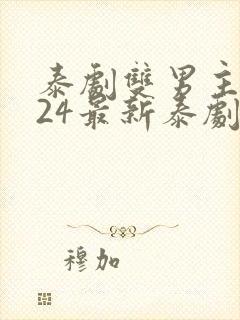 泰劇雙男主
24最新泰劇
穆加